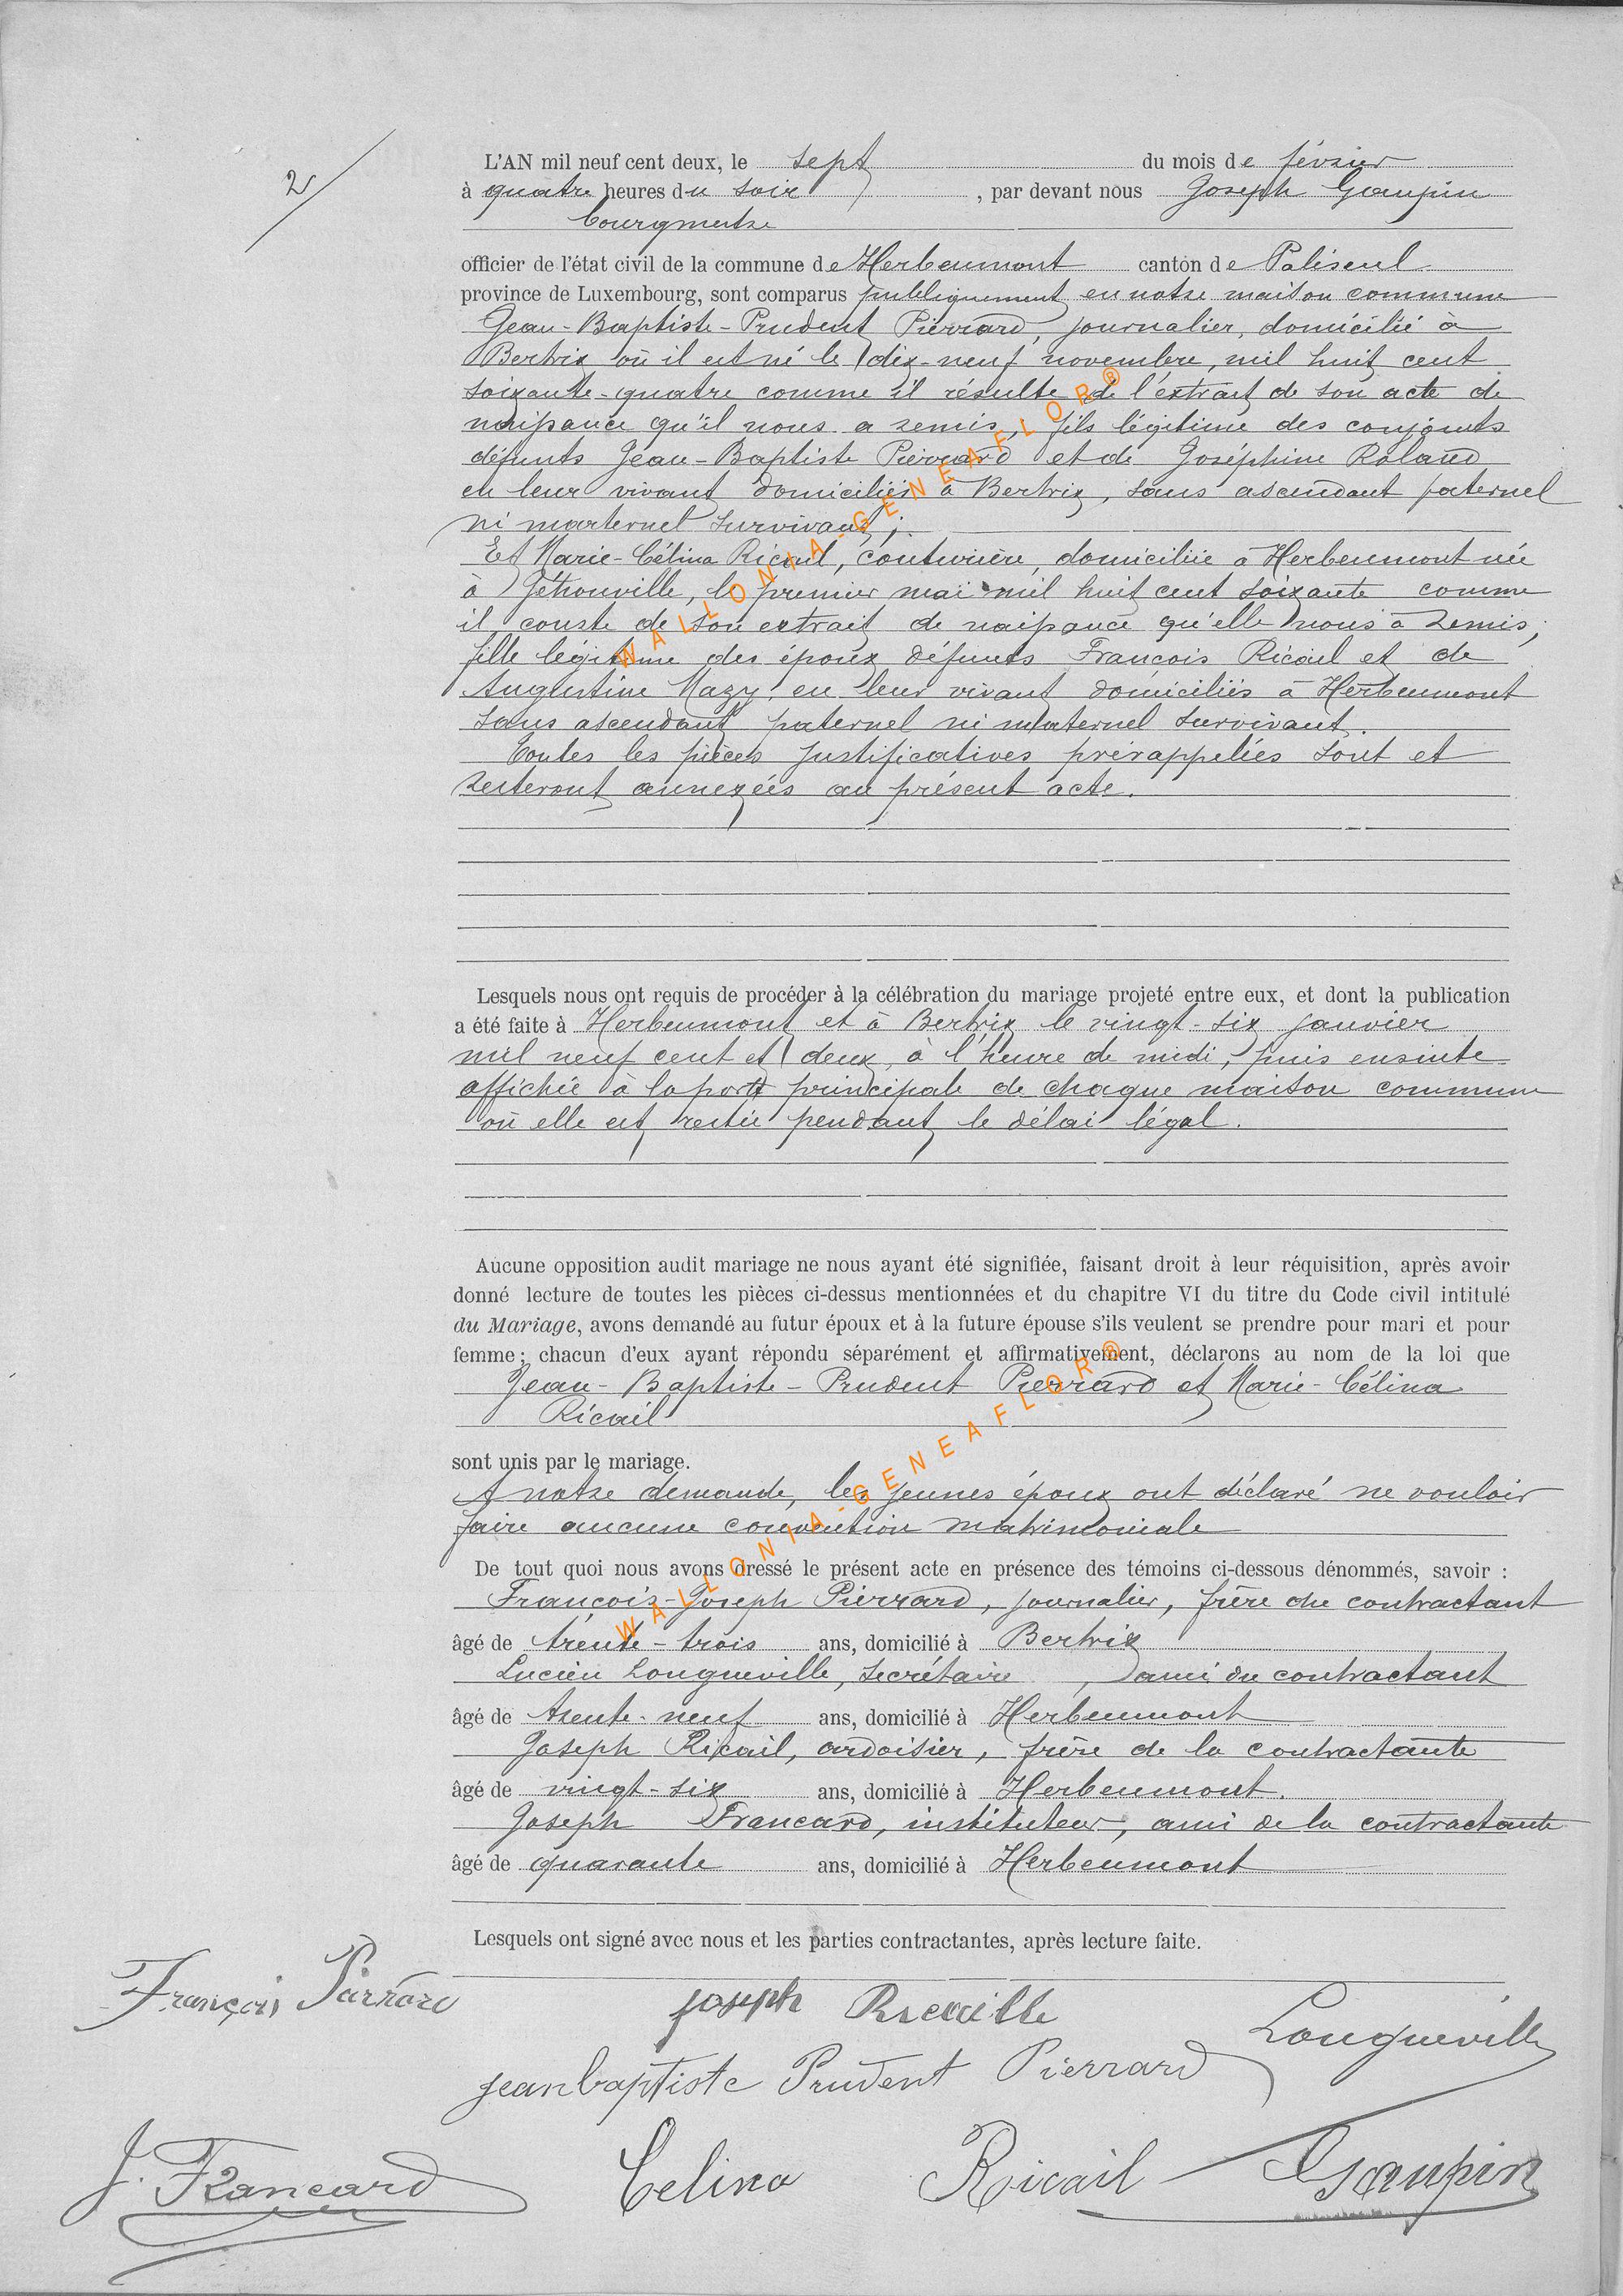 2
L'AN mil neuf cent deux, le sept du mois de février
à quatre heures du soir, par devant nous Joseph Gaupin
bourgmestre
officier de l'état civil de la commune de Herbeumont canton de Paliseul
province de Luxembourg, sont comparus publiquement en notre maison commune
Jean-Baptiste-Prudent Pierrard, journalier, domicilié à
Bertrix où il est né le dix-neuf novembre, mil huit cent
soixante-quatre comme il résulte de l'extrait de son acte de
naissance qu'il nous a remis, fils légitime des conjoints
défunts Jean-Baptiste Pierrard et de Joséphine Roland
en leur vivant domiciliés à Bertrix, sans ascendant paternel
ni maternel survivant;
Et Marie-Célina Ricail, couturière, domiciliée à Herbeumont née
à Géhonville, le premier mai mil huit cent soixante comme
il conste de son extrait de naissance qu'elle nous a remis;
fille légitime des époux défunts François Ricail et de
Augustine Mazy, en leur vivant domiciliés à Herbeumont
sans ascendant paternel ni maternel survivant.
Toutes les pièces justificatives prérappelées sont et
resteront annexées au présent acte.
Lesquels nous ont requis de procéder à la célébration du mariage projeté entre eux, et dont la publication
a été faite à Herbeumont et à Bertrix le vingt-six janvier
mil neuf cent et deux, à l'heure de midi, puis ensuite
affichée à la porte principale de chaque maison commune
où elle est restée pendant le délai légal.
Aucune opposition audit mariage ne nous ayant été signifiée, faisant droit à leur réquisition, après avoir
donné lecture de toutes les pièces ci-dessus mentionnées et du chapitre VI du titre du Code civil intitulé
du Mariage, avons demandé au futur époux et à la future épouse s'ils veulent se prendre pour mari et pour
femme; chacun d'eux ayant répondu séparément et affirmativement, déclarons au nom de la loi que
Jean-Baptiste-Prudent Pierrard et Marie-Célina
Ricail
sont unis par le mariage.
A notre demande, les jeunes époux ont déclaré ne vouloir
faire aucune convention matrimoniale
De tout quoi nous avons dressé le présent acte en présence des témoins ci-dessous dénommés, savoir :
François-Joseph Pierrard, journalier, frère du contractant
âgé de trente-trois ans, domicilié à Bertrix
Lucien Longueville, secrétaire, ami du contractant
âgé de trente-neuf ans, domicilié à Herbeumont
Joseph Ricail, ardoisier, frère de la contractante
âgé de vingt-six ans, domicilié à Herbeumont.
Joseph Francard, instituteur, ami de la contractante
âgé de quarante ans, domicilié à Herbeumont
Lesquels ont signé avec nous et les parties contractantes, après lecture faite.
François Pierrard
joseph Ricaille
Longueville
jeanbaptiste Prudent Pierrard
J. Francard
Celina Ricail
Gaupin
WALLONIA-GENEAFLOR®
WALLONIA-GENEAFLOR®